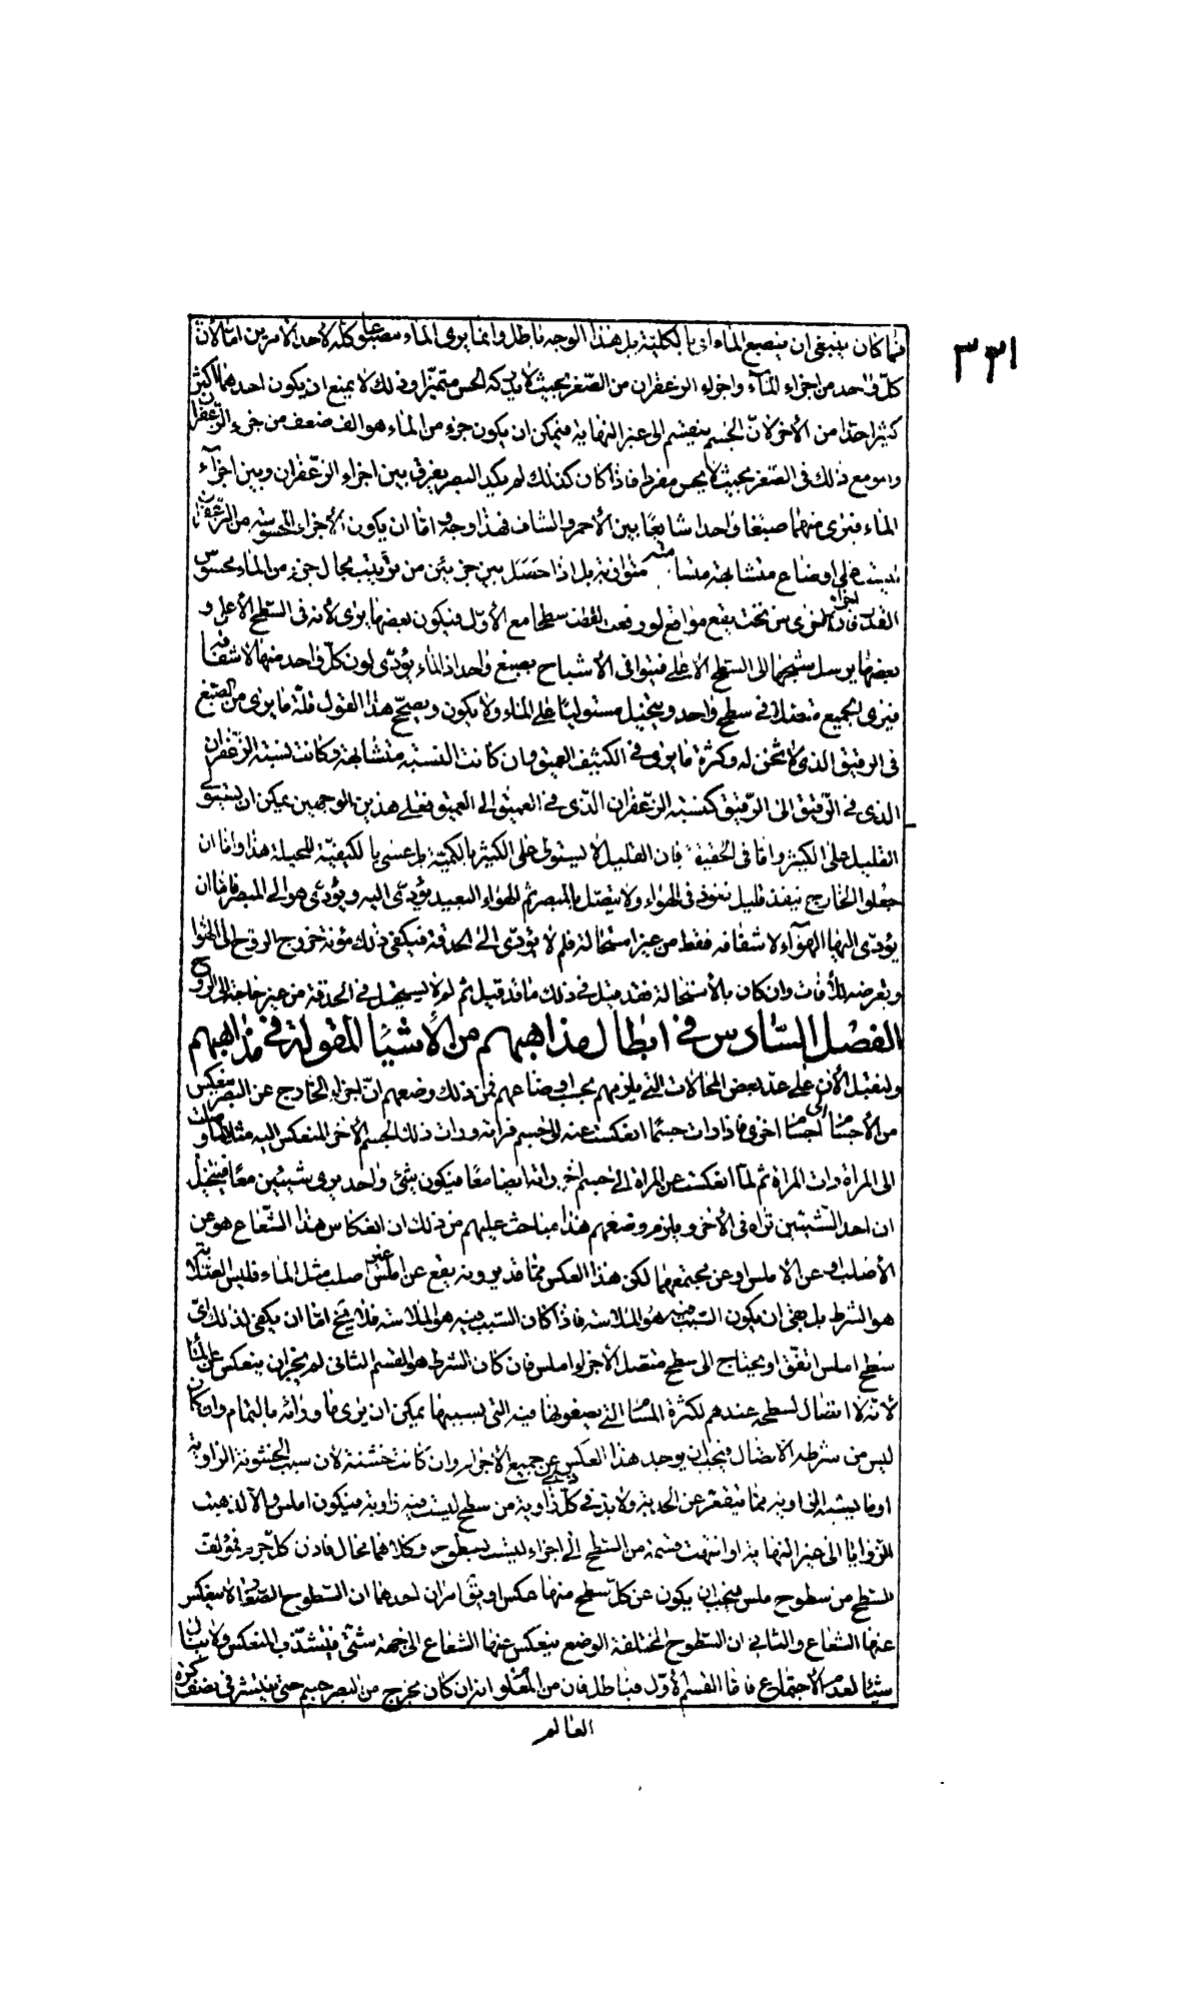 ٣٣١
فما كان ينبغى ان ينصبغ الماء اى بالكلية بل هذا الوجه باطل وانما يرى الماء منصبغا كله لأحد الأمرين اما لأن
كل واحد من اجزاء الماء واجزاء الزعفران من الصغر بحيث لا يدركه الحس متميزا وذلك لا يمنع ان يكون احدهما اكثر
كثيرا جدا من الأخر لأن الجسم ينقسم الى غير النهاية فيمكن ان يكون جزء من الماء هو الف ضعف من جزء الزعفران
وهو مع ذلك فى الصغر بحيث لا يحس مفردا فاذا كان كذلك لم يكد البصر يفرق بين اجزاء الزعفران وبين اجزاء
الماء فيرى منهما صبغا واحدا شايعا بين الأحمر والشاف فهذا وجه واما ان يكون الأجزاء المحسوسة من الزعفران
ليست على اوضاع متشابهة متسامتة متوازية بل اذا حصل بين جزئين من ترتيب مجال جزء من الماء محسوس
القدر فان اجزاء اخرى من تحت يقع مواقع لو رفعت لغطت سطحا مع الأول فيكون بعضها يرى لأنه فى السطح الأعلى و
بعضها يرسل شبحها الى السطح الاعلى فيتوافى الأشباح بصبغ واحد اذ الماء يؤدى لون كل واحد منها لاشفافه
فيرى الجميع متصلا فى سطح واحد ويتخيل مستوليا على الماء ولا يكون ويصحح هذا القول قلة ما يرى من الصبغ
فى الرقيق الذى لا ثخن له وكثرة ما يرى فى الكثيف العميق وان كانت النسبة متشابهة وكانت نسبة الزعفران
الذى فى الرقيق الى الرقيق كنسبة الزعفران الذى فى العميق الى العميق فعلى هذين الوجهين يمكن ان يستولى
القليل على الكثير واما فى الحقيقة فان القليل لا يستولى على الكثير بالكمية بل عسى بالكيفية المحيلة هذا واما ان
جعلوا الخارج ينفذ قليل نفوذ فى الهواء ولا يتصل بالمبصر ثم الهواء البعيد يؤدى اليه ويؤدى هو الى المبصر فاما ان
يؤدى اليها الهواء لاشفافه فقط من غير استحالة فلم لا يؤدى الى الحدقة فيكفى ذلك مؤنة خروج الروح الى الهواء
وتعرضه للأفات وان كان بالأستحالة فقد قيل فى ذلك ما قد قيل ثم لم لا يستحيل فى الحدقة من غير حاجة الى الروح
الفصل السادس فى ابطال مذاهبهم من الأشياء المقولة فى مذاهبهم
ولنقبل الأن على عد بعض المحالات التى يلزمهم بحسب اوضاعهم فمن ذلك وضعهم ان اجزاء الخارج عن البصر ينعكس
من الأجسام الى اجسام اخرى فاذا رات جسما انعكست عنه الى جسم فراته ورات ذلك الجسم الأخر المنعكس اليه مثلا لما وصلت
الى المراة رات المراة ثم لما انعكست عن المراة الى جسم اخر راته ايضا معا فيكون شئ واحد يرى شيئين معا فيتخيل
ان احد الشيئين تراه فى الأخر ويلزم وضعهم هذا مباحث عليهم من ذلك ان انعكاس هذا الشعاع هو عن
الأصلب او عن الاملس او عن مجتمعهما لكن هذا العكس مما قد يرونه يقع عن املس غير صلب مثل الماء فليس الصلابة
هو الشرط بل بقى ان يكون السبب فيه هو الملاسة فاذا كان السبب فيه هو الملاسة فلا يخ اما ان يكفى لذلك اى
سطح املس اتفق او يحتاج الى سطح متصل الأجزاء املس فان كان الشرط هو القسم الثانى لم يجز ان ينعكس عن الماء
لأنه لا اتصال لسطحه عندهم لكثرة المسام التى يصفونها فيه التى بسببها يمكن ان يرى ما وراءه بالتمام وان كان
ليس من شرطه الاتصال فيجب ان يوجد هذا العكس عن جميع الأجرام وان كانت خشنة لأن سبب الخشونة الزاوية
او ما يشبه الزاوية مما يتقعر عن الحدبة ولا بد فى كل ذى زاوية من سطح ليست فيه زاوية فيكون املس والا لذهبت
الزوايا الى غير النهاية او انتهت قسمة من السطح الى اجزاء ليست بسطوح وكلاهما محال فاذن كل جرم فمؤلف
السطح من سطوح ملس فيجب ان يكون عن كل سطح منها عكس اوبق امران احدهما ان السطوح الصغار لا ينعكس
عنها الشعاع والثانى ان السطوح المختلفة الوضع ينعكس عنها الشعاع الى جهة شتى فيتشذب المنعكس ولا ينال
شيئا لعدم الاجتماع فاما القسم الأول فباطل فان من المعلوم انه ان كان يخرج من البصر جسم حتى ينتشر فى نصف كرة
العالم